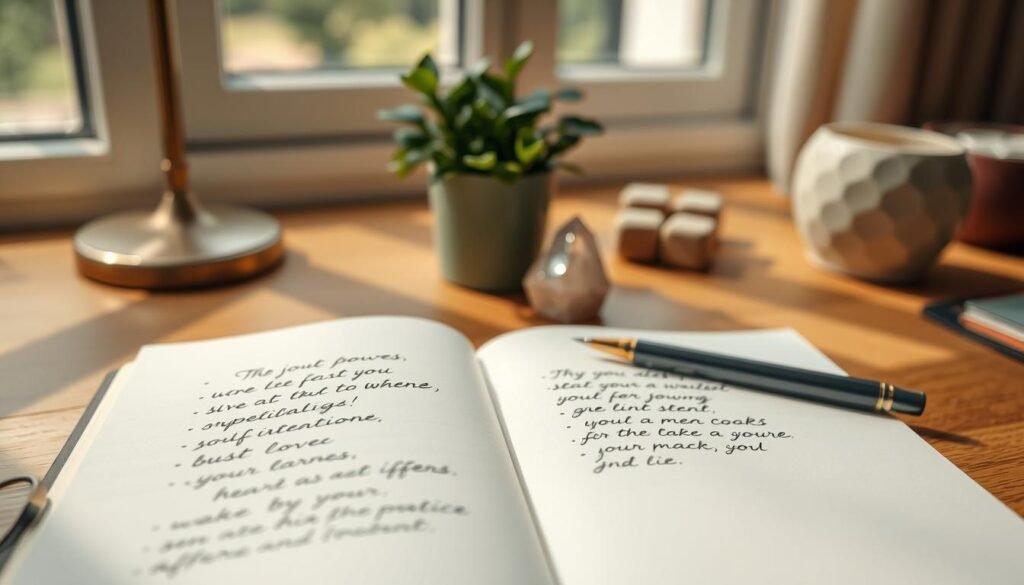 The jout powes,
· wore lee fast you
· slve at tkut to whene,
· souf istentione,
· bust lovee
·· your larnes,
heart as aet iffens.
· wake by your,
· sen ate his the putice
· affere and
Thy you
slat your a
yout for jowing
gre lint stent.
· yout a men cooks
· for the take a youre.
· jour mack, youl
ynd lie.